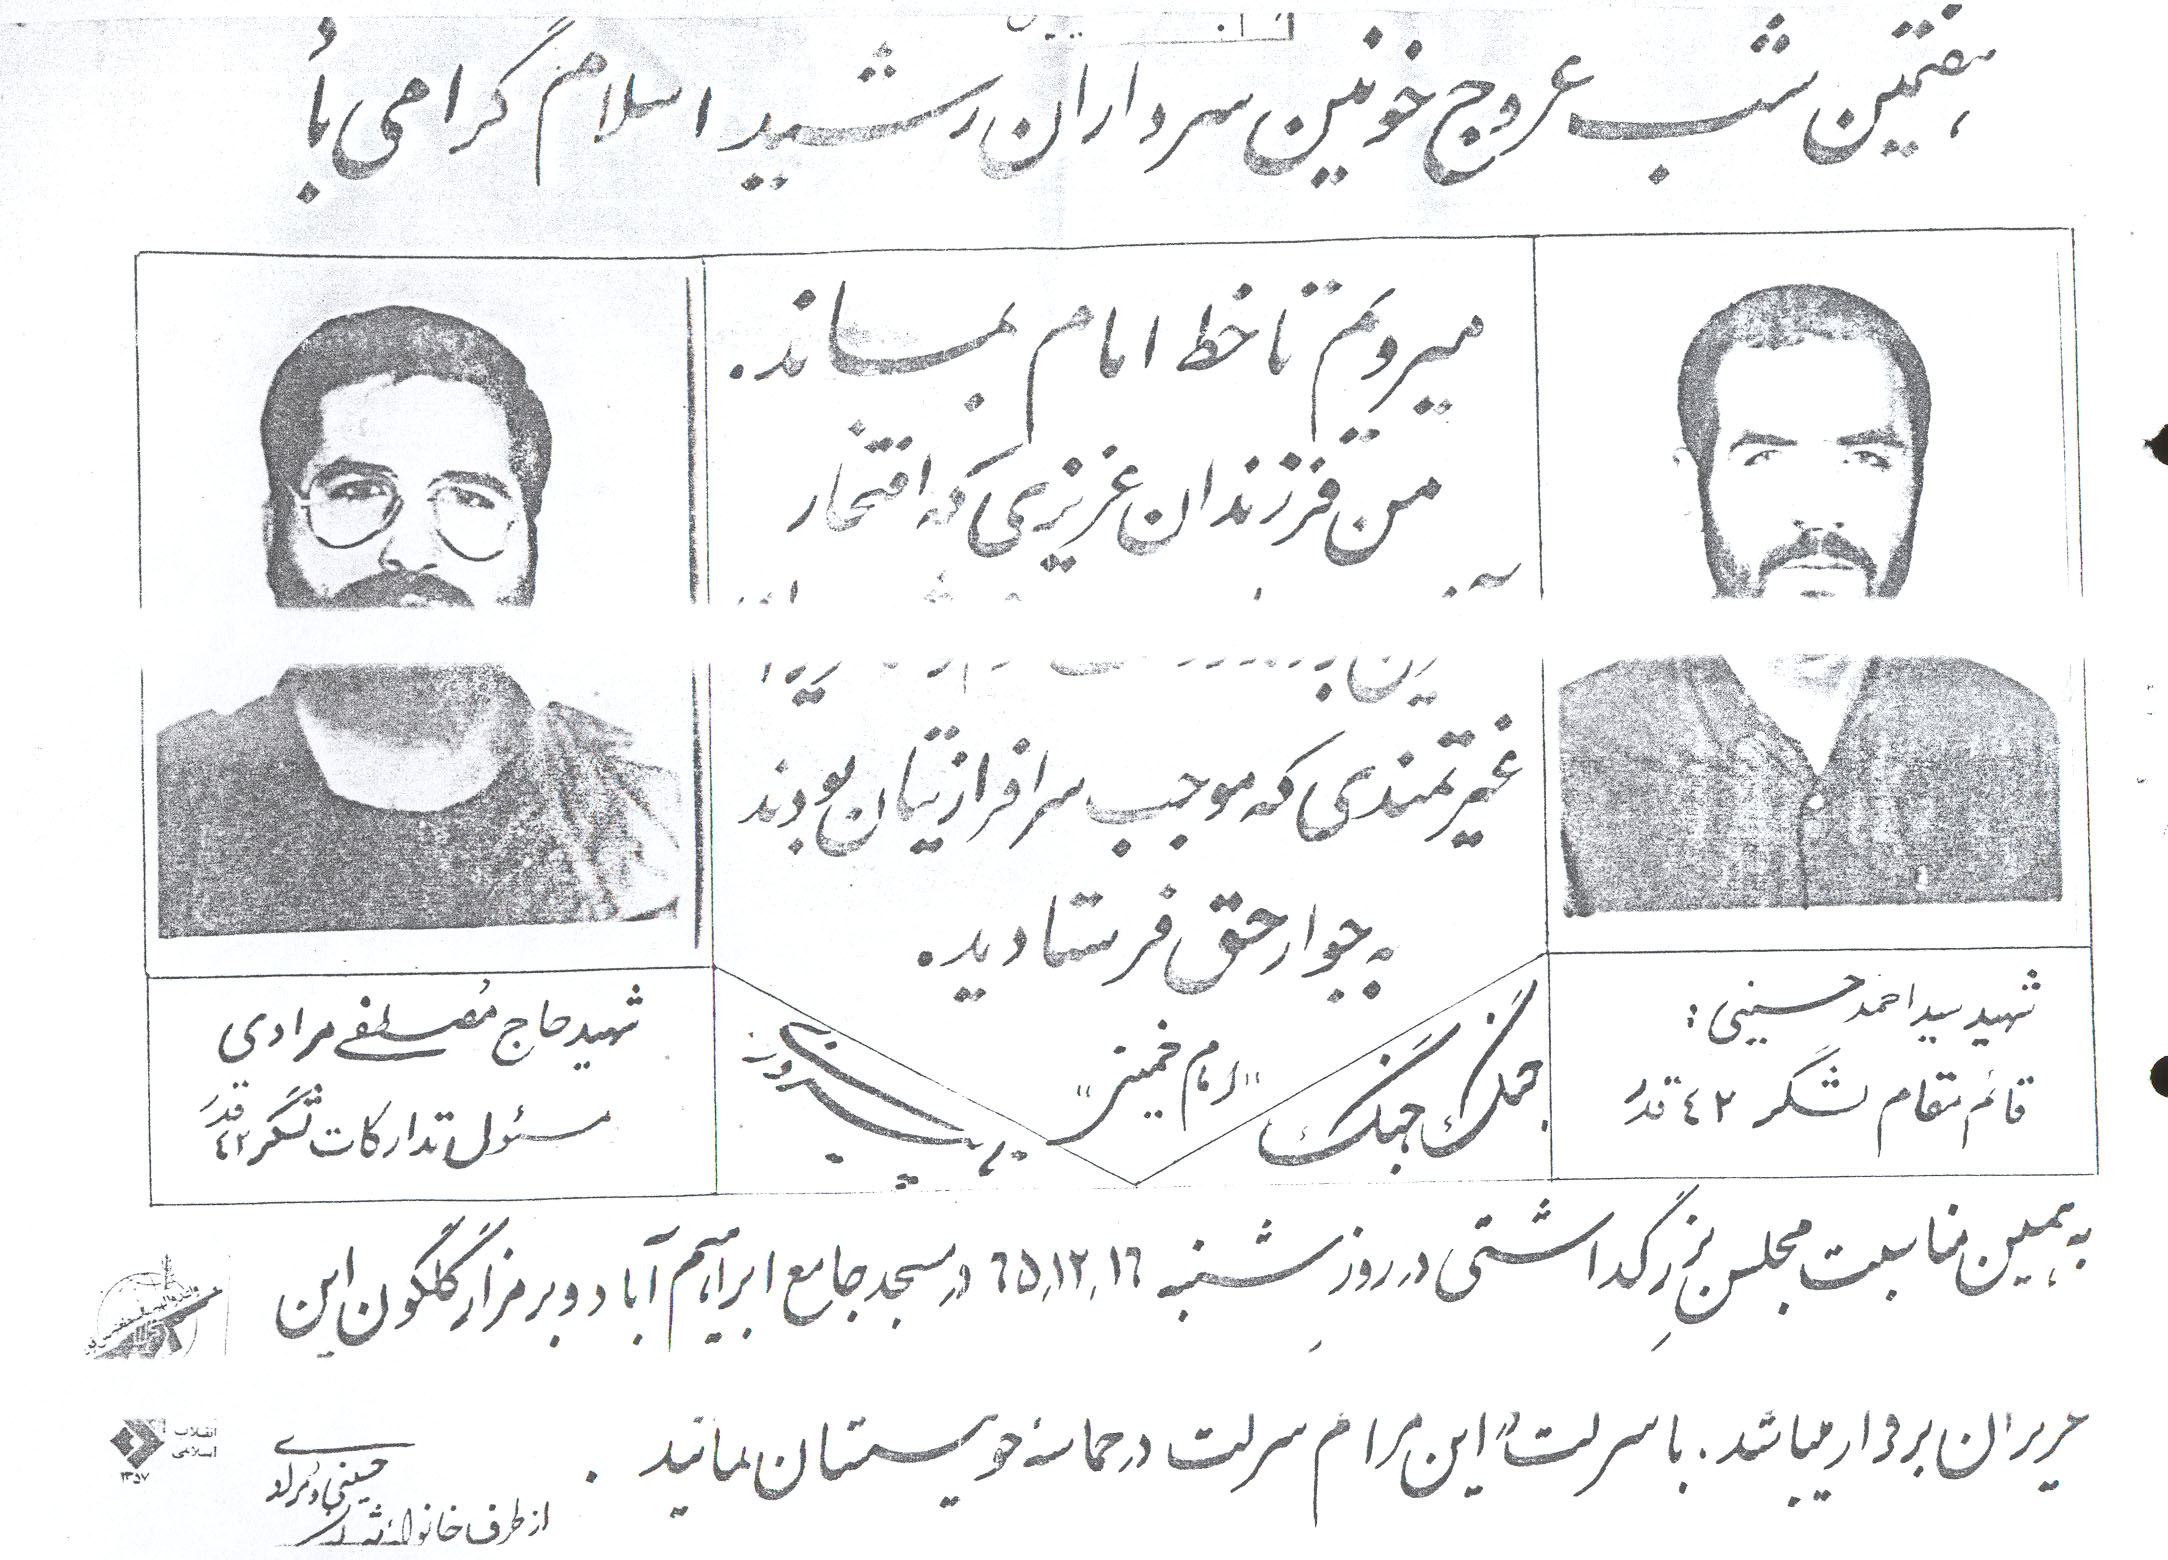 هفتمین شب عروج خونین سرداران رشید اسلام گرامی باد
میرویم تا خط امام بماند.
من فرزندان عزیزی که افتخار
غیرتمندی که موجب سرافرازیتان بودند
به جوار حق فرستادید.
"امام خمینی"
جنگ جنگ
پیروزی
شهید سید احمد حسینی:
قائم مقام لشگر ٤٢ قدر
شهید حاج مصطفی مرادی
مسئول تدارکات لشگر ٤٢ قدر
به همین مناسبت مجلس بزرگداشتی در روز شنبه ٦٥,١٢,١٦ در مسجد جامع ابراهیم آباد و بر مزار گلگون این
عزیزان برقرار میباشد. با شرکت در این مراسم شرکت در حماسه خویستان بمانید.
از طرف خانواده حسینی و مرادی
انقلاب
اسلامی
١٣٥٧